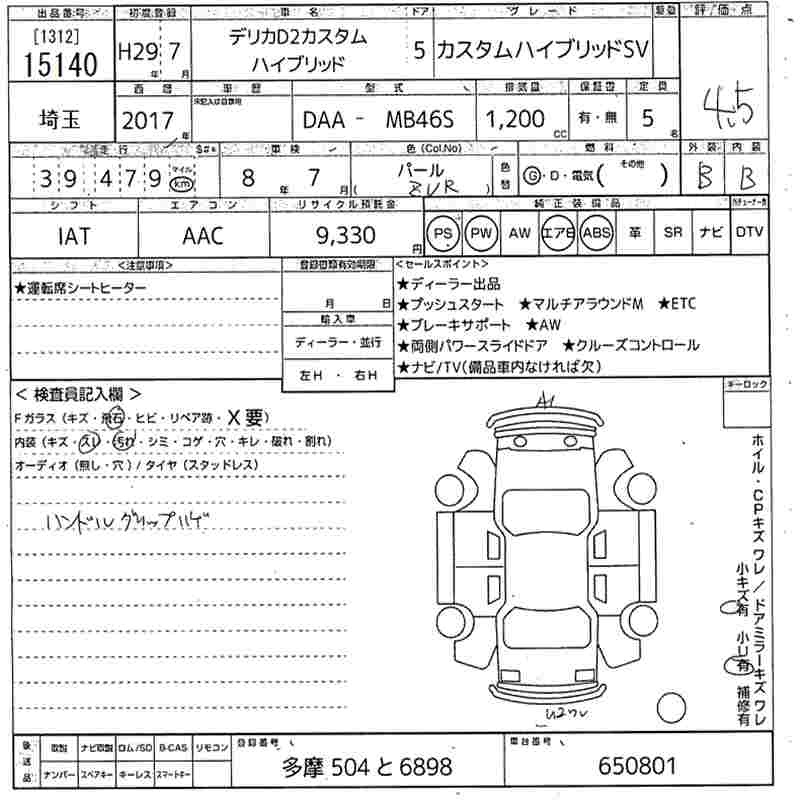 出品番号 初度登録 車名 ドア グレード 駆動 評価点
[1312]
15140 H29年 7月 デリカD2カスタム ハイブリッド 5 カスタムハイブリッドSV
4.5
西暦 車歴 型式 排気量 保証書 定員
未記入は自家用
埼玉 2017年 DAA - MB46S 1,200cc 有・無 5名
走行 車検 色(Col.No) 燃料 外装 内装
39479 マイル km 8年 7月 パール
( ZVR ) 色替 G・D・電気( その他 ) B B
シフト エアコン リサイクル預託金 純正装備品
IAT AAC 9,330円 PS PW AW エアB ABS 革 SR ナビ DTV
<注意事項> 登録書類有効期限 <セールスポイント>
★運転席シートヒーター
月 日
輸入車
ディーラー・並行
左H・右H
★ディーラー出品
★プッシュスタート ★マルチアラウンドM ★ETC
★ブレーキサポート ★AW
★両側パワースライドドア ★クルーズコントロール
★ナビ/TV(備品車内なければ欠)
キーロック
<検査員記入欄>
Fガラス(キズ・飛石・ヒビ・リペア跡・X要)
内装(キズ・スレ・汚れ・シミ・コゲ・穴・キレ・破れ・割れ)
オーディオ(無し・穴)/タイヤ(スタッドレス)
ハンドルグリップハゲ
A1
ホイル・CPキズワレ/ドアミラーキズワレ
小キズ有 小U有 補修有
後送品 取説 ナビ取説 ロム/SD B-CAS リモコン
ナンバー スペアキー キーレス スマートキー
登録番号
多摩 504 と 6898
車台番号
650801